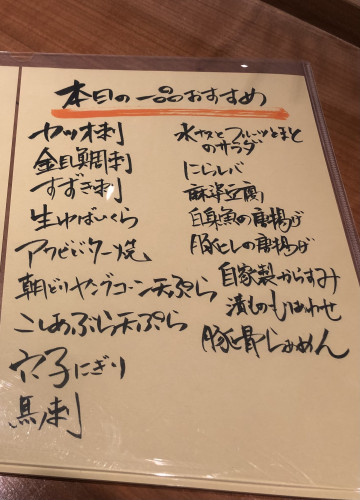 本日の一品おすすめ
カツオ刺
金目鯛刺
すずき刺
生ゆばいくら
アワビバター焼
朝どりヤングコーン天ぷら
こしあぶら天ぷら
穴子にぎり
馬刺
水ナスとフルーツとまと
のサラダ
にらレバ
麻婆豆腐
白身魚の唐揚げ
豚ヒレの唐揚げ
自家製からすみ
漬もの もりあわせ
豚と骨らぁめん